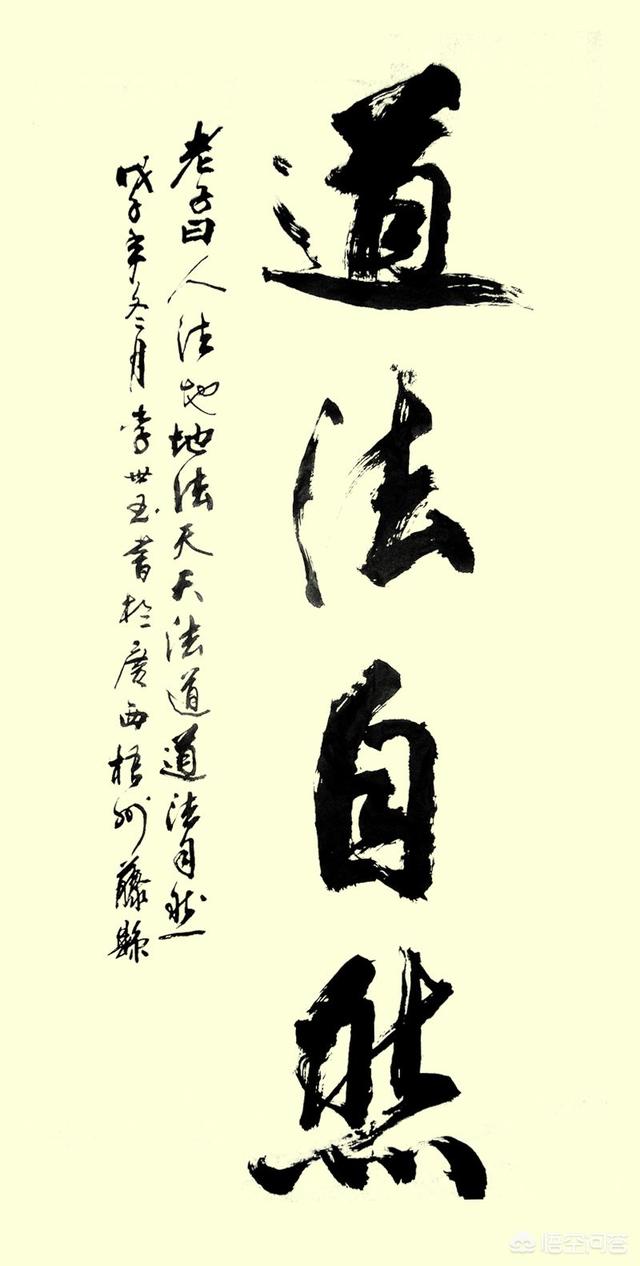 道法自然
老子曰人法地地法天天法道道法自然
戊子年冬月李世玉書於廣西梧州藤縣
悟空问答